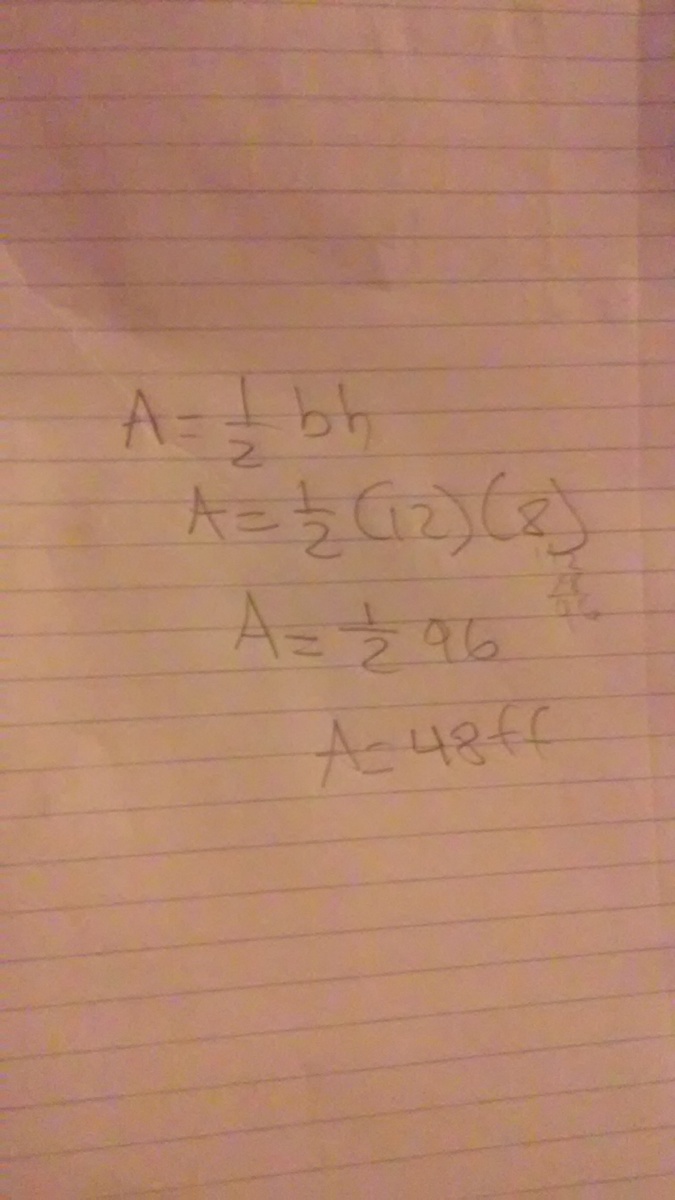 A = 1/2 bh
A = 1/2 (12)(8)
A = 1/2 96
A = 48ft